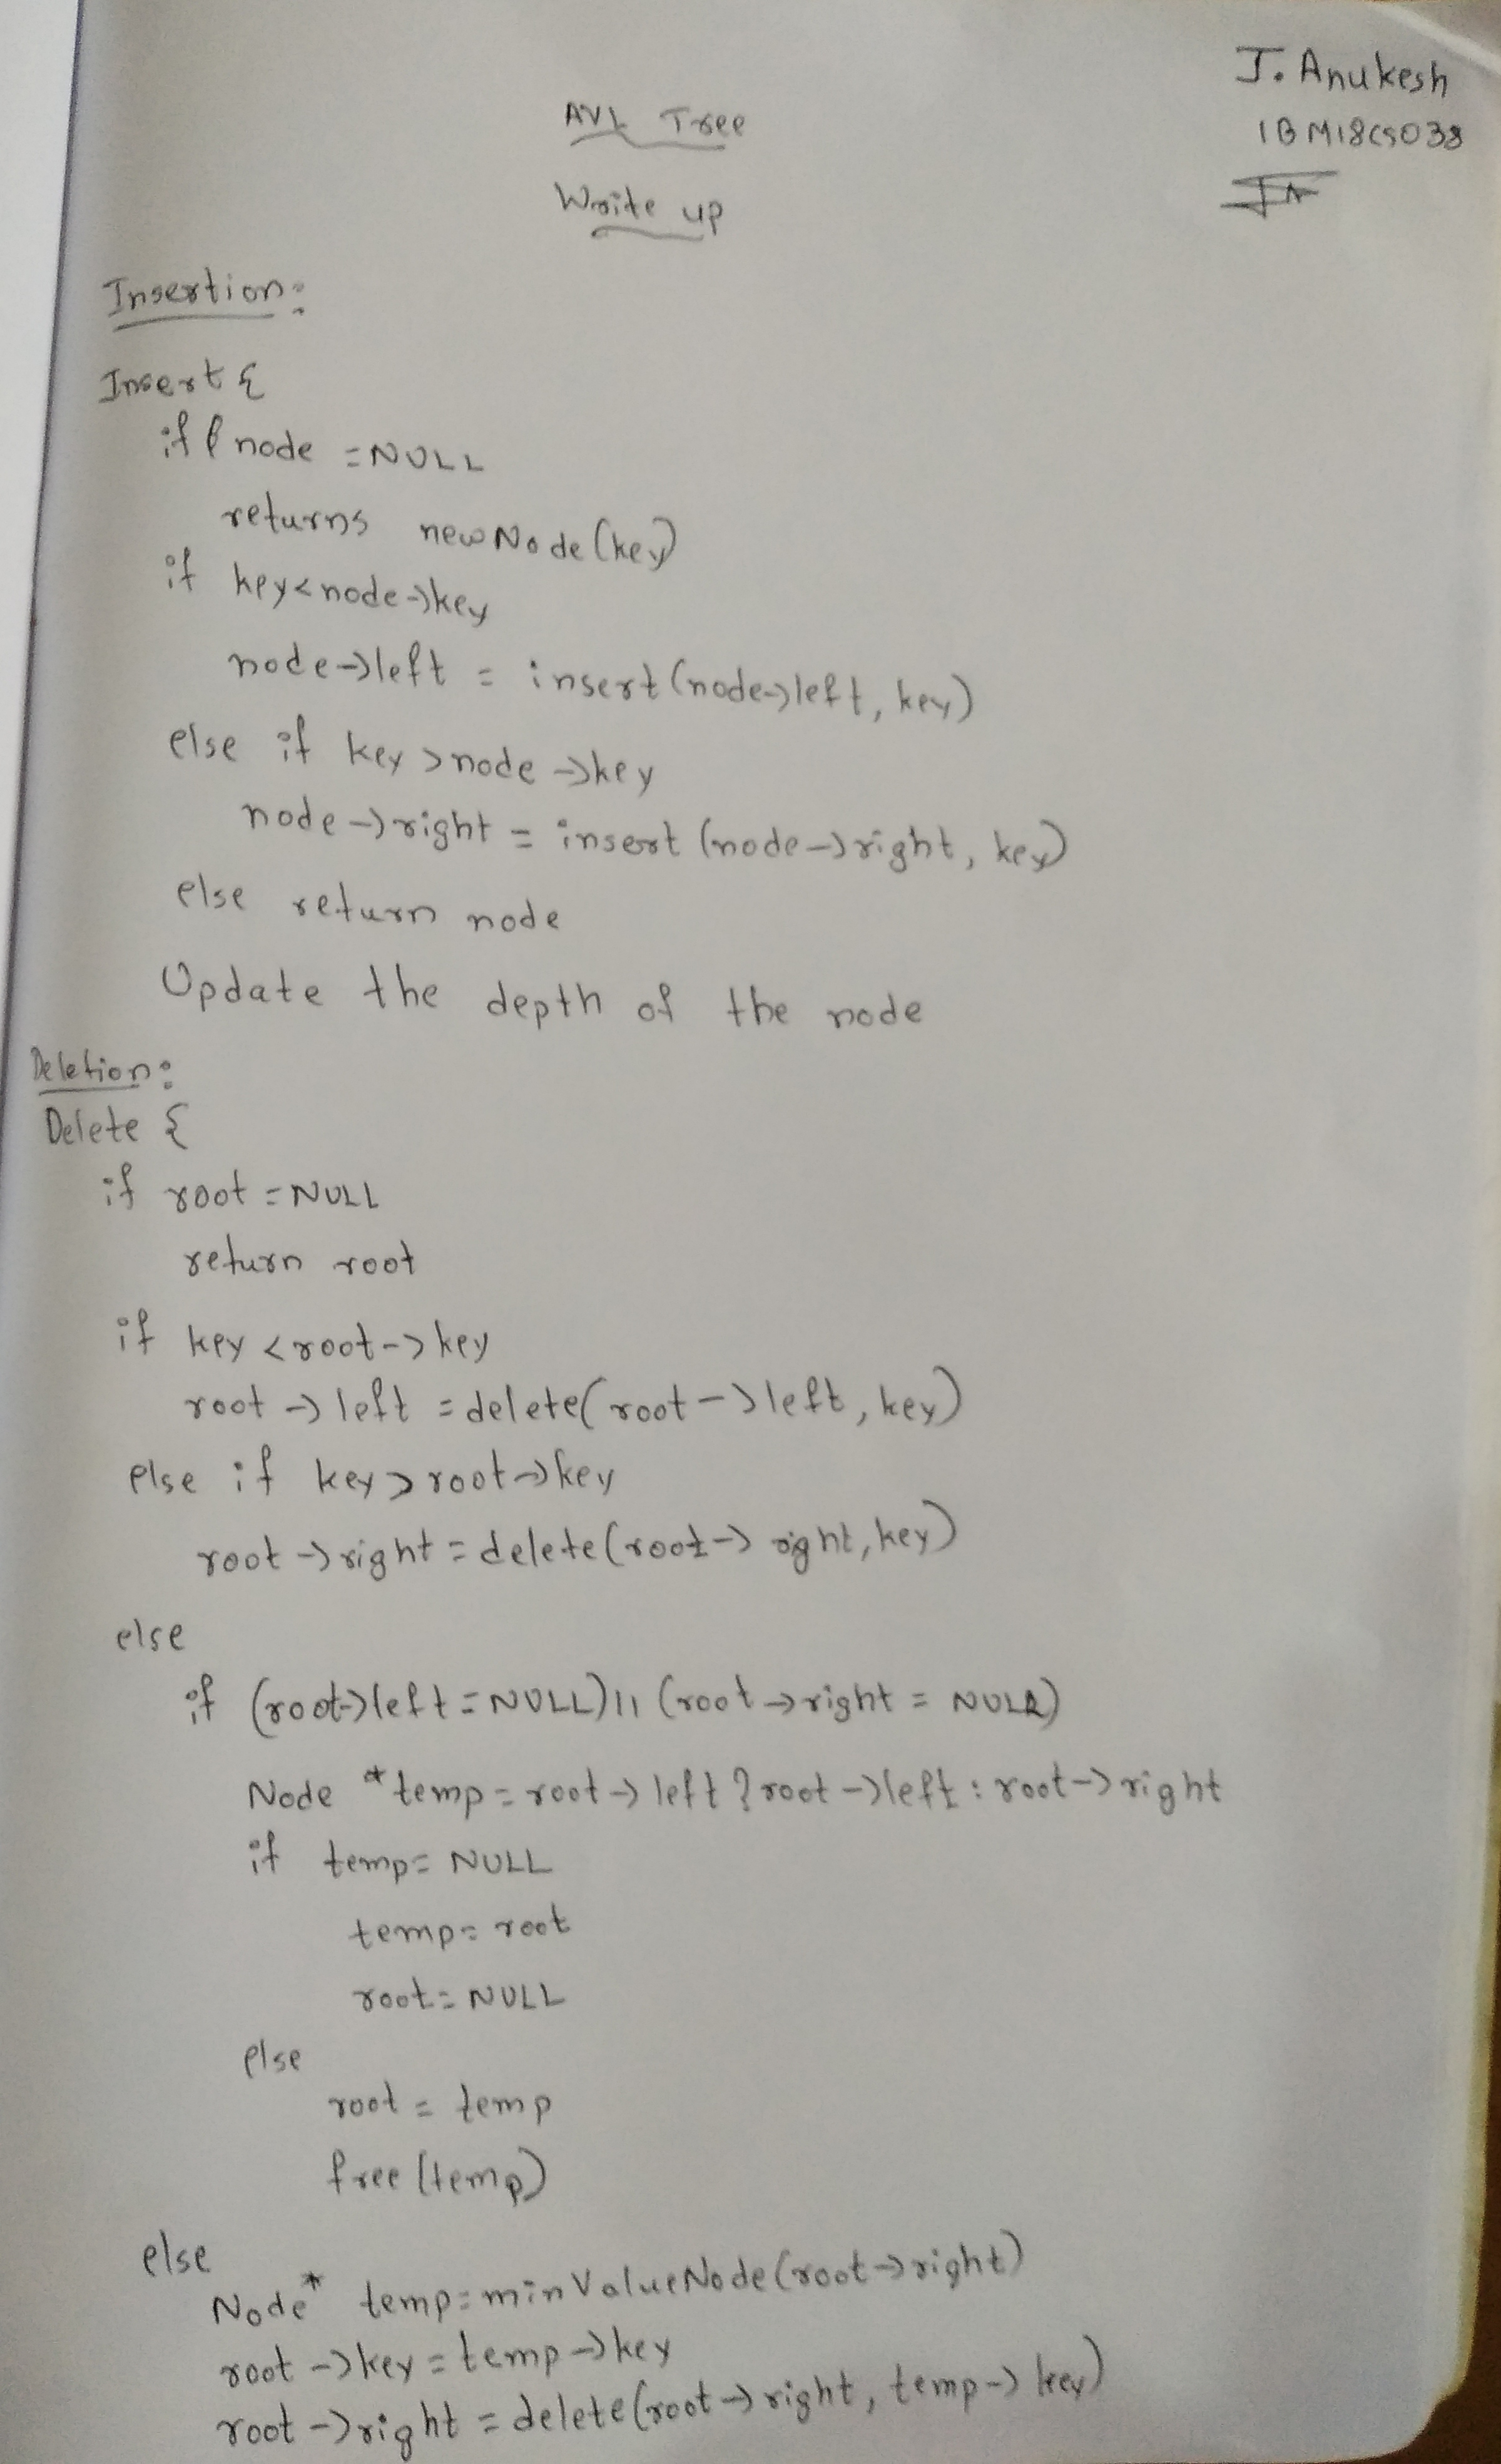 J. Anukesh
1BM18CS038
AVL Tree
Write up
Insertion:
Insert {
if ( node = NULL
returns newNode (key)
if key<node->key
node->left = insert (node->left, key)
else if key >node ->key
node->right = insert (node->right, key)
else return node
Update the depth of the node
Deletion:
Delete {
if root = NULL
return root
if key <root-> key
root -> left = delete( root -> left, key)
else if key > root->key
root -> right = delete (root-> right, key)
else
if (root->left = NULL) || (root ->right = NULL)
Node *temp = root -> left ? root ->left : root -> right
if temp= NULL
temp= root
root= NULL
else
root = temp
free (temp)
else
Node* temp= minValueNode (root->right)
root ->key = temp ->key
root ->right = delete (root -> right, temp-> key)